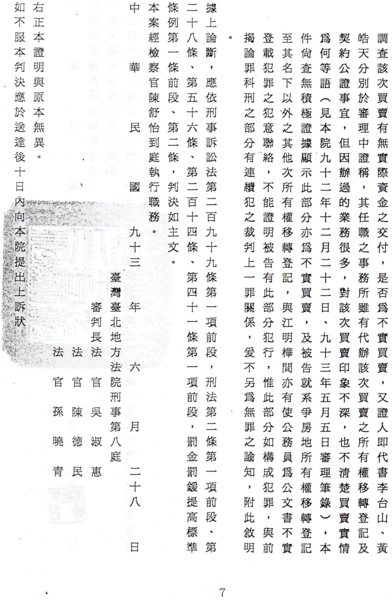 調查該次買賣有無實際資金之交付，是否爲不實買賣，又證人即代書李台山、黃
皓天分別於審理中證稱，其任職之事務所雖有代辦該次買賣之所有權移轉登記及
契約公證事宜，但因辦過的業務很多，對該次買賣印象不深，也不清楚買賣實情
爲何等語（見本院九十二年十二月二十二日、九十三年五月五日審理筆錄），本
件尚查無積極證據顯示此部分亦爲不實買賣，及被告就系爭房地所有權移轉登記
至其名下以外之其他次所有權移轉登記，與江明樺間亦有使公務員爲公文書不實
登載犯罪之犯意聯絡，不能證明被告有此部分犯行，惟此部分如構成犯罪，與前
揭論罪科刑之部分有連續犯之裁判上一罪關係，爰不另爲無罪之諭知，附此敘明
。
據上論斷，應依刑事訴訟法第二百九十九條第一項前段，刑法第二條第一項前段、第
二十八條、第五十六條、第二百十四條、第四十一條第一項前段，罰金罰鍰提高標準
條例第一條前段、第二條，判決如主文。
本案經檢察官陳舒怡到庭執行職務。
中華民國九十三年六月二十八日
臺灣臺北地方法院刑事第八庭
審判長法官吳淑惠
法官陳德民
法官孫曉青
右正本證明與原本無異。
如不服本判決應於送達後十日內向本院提出上訴狀
7